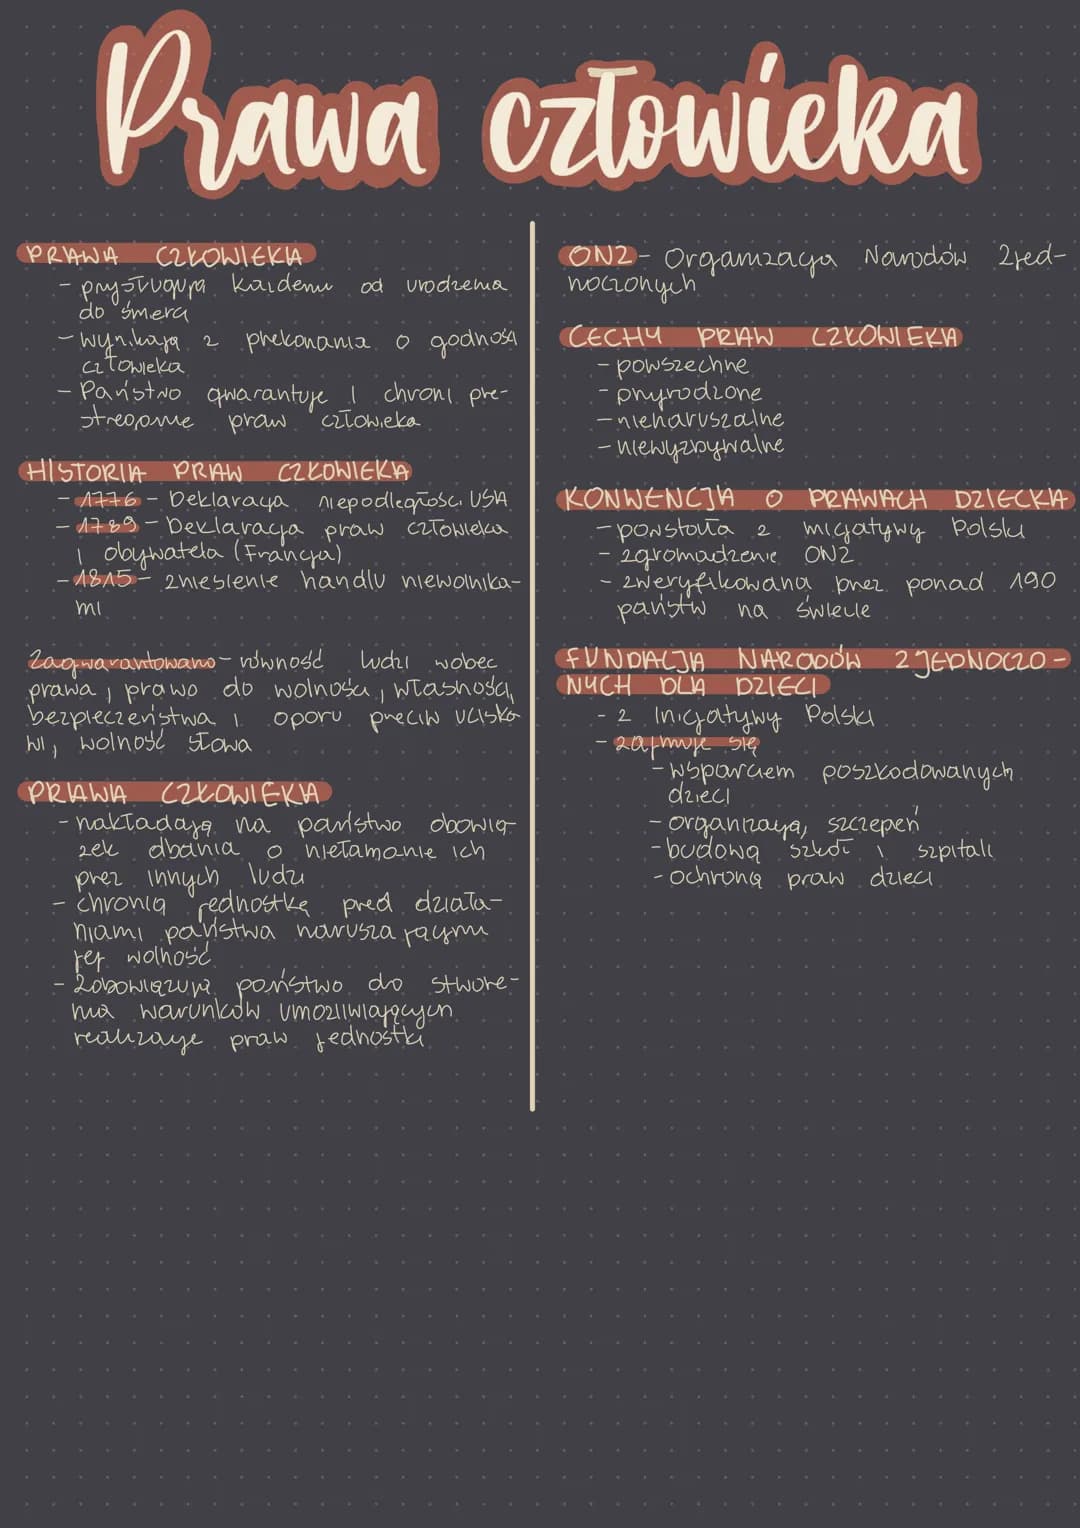 Prawa człowieka
PRAWA CZŁOWIEKA
- przysługują każdemu od urodzenia
do śmierci
- wynikają z przekonania o godności
człowieka
- Państwo gwarantuje i chroni prze-
strzeganie praw człowieka
HISTORIA PRAW CZŁOWIEKA
- 1776 - Deklaracja niepodległości USA
- 1789 - Deklaracja praw człowieka
i obywatela (Francja)
- 1815 - zniesienie handlu niewolnika-
mi
Zagwarantowano - równość ludzi wobec
prawa, prawo do wolności, własności,
bezpieczeństwa i oporu przeciw ucisko-
wi, wolność słowa
PRAWA CZŁOWIEKA
- nakładają na państwo obowią-
zek dbania o niełamanie ich
przez innych ludzi
- chronią jednostkę przed działa-
niami państwa naruszającymi
jej wolność
- Zobowiązują państwo do stworze-
nia warunków umożliwiających
realizację praw jednostki
ONZ - Organizacja Narodów Zjed-
noczonych
CECHY PRAW CZŁOWIEKA
- powszechne
- przyrodzone
- nienaruszalne
- niewyzbywalne
KONWENCJA O PRAWACH DZIECKA
- powstała z inicjatywy Polski
- zgromadzenie ONZ
- zweryfikowana przez ponad 190
państw na świecie
FUNDACJA NARODÓW ZJEDNOCZO-
NYCH DLA DZIECI
- z inicjatywy Polski
- zajmuje się
- wsparciem poszkodowanych
dzieci
- organizacją szczepień
- budową szkół i szpitali
- ochroną praw dzieci